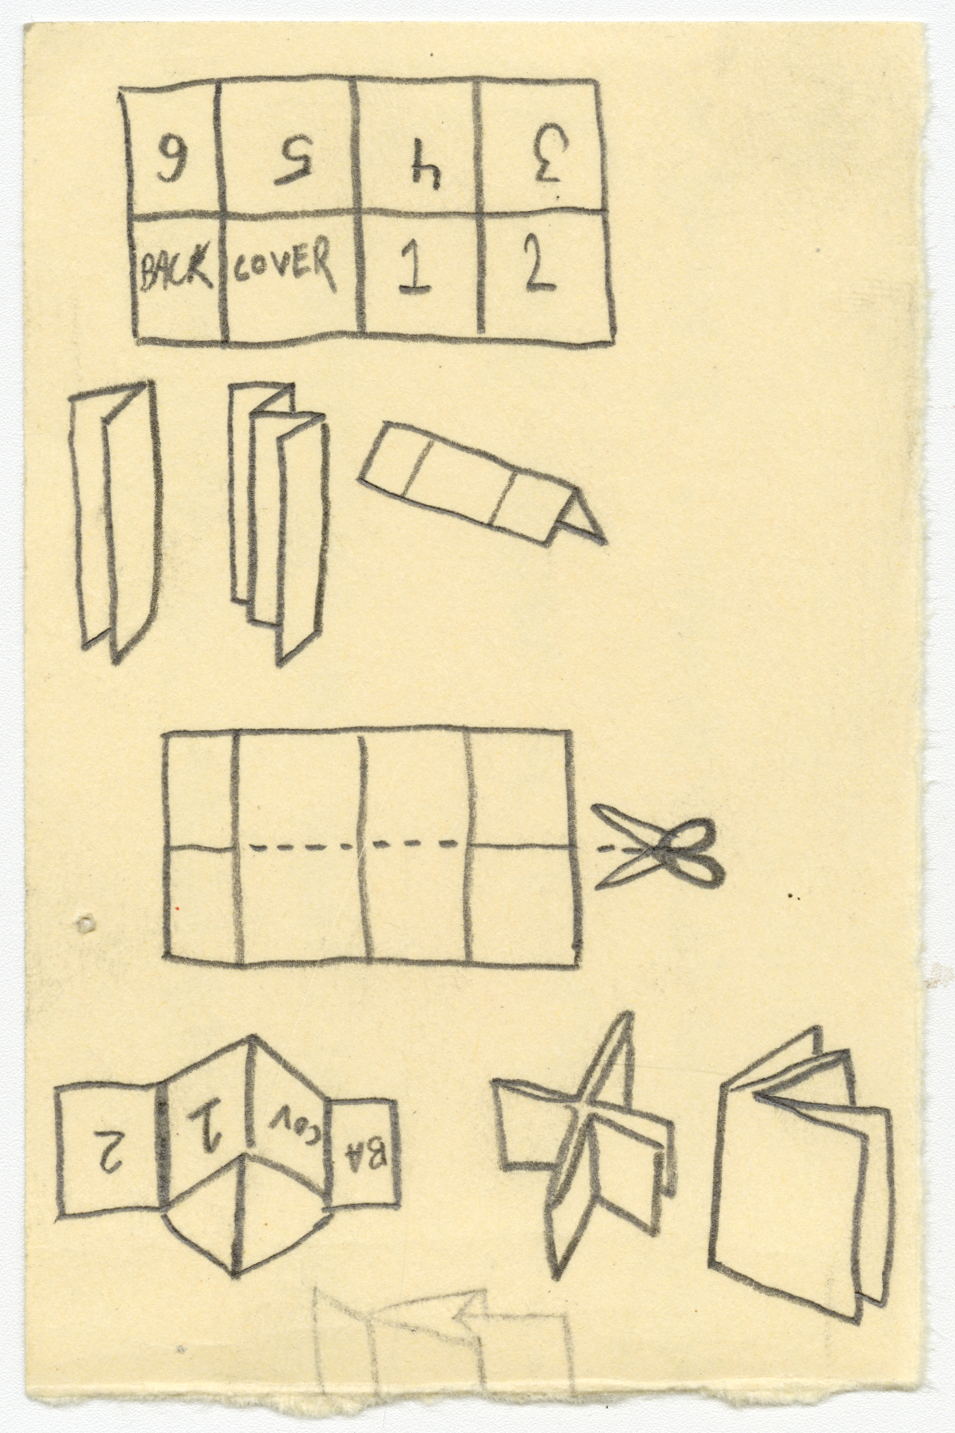 6 5 4 3
BACK COVER 1 2
2 1 COV BA